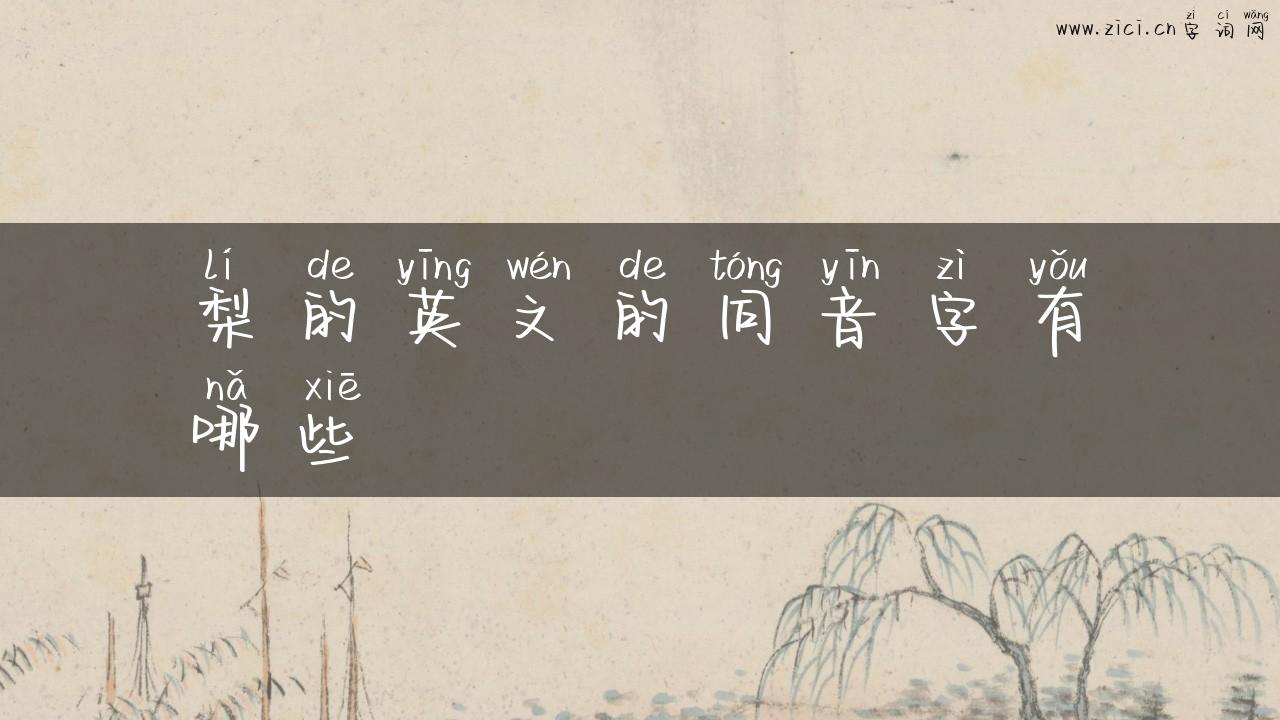 zì cí wǎng
www.zici.cn 字 词 网
lí de yīng wén de tóng yīn zì yǒu
梨 的 英 文 的 同 音 字 有
nǎ xiē
哪 些